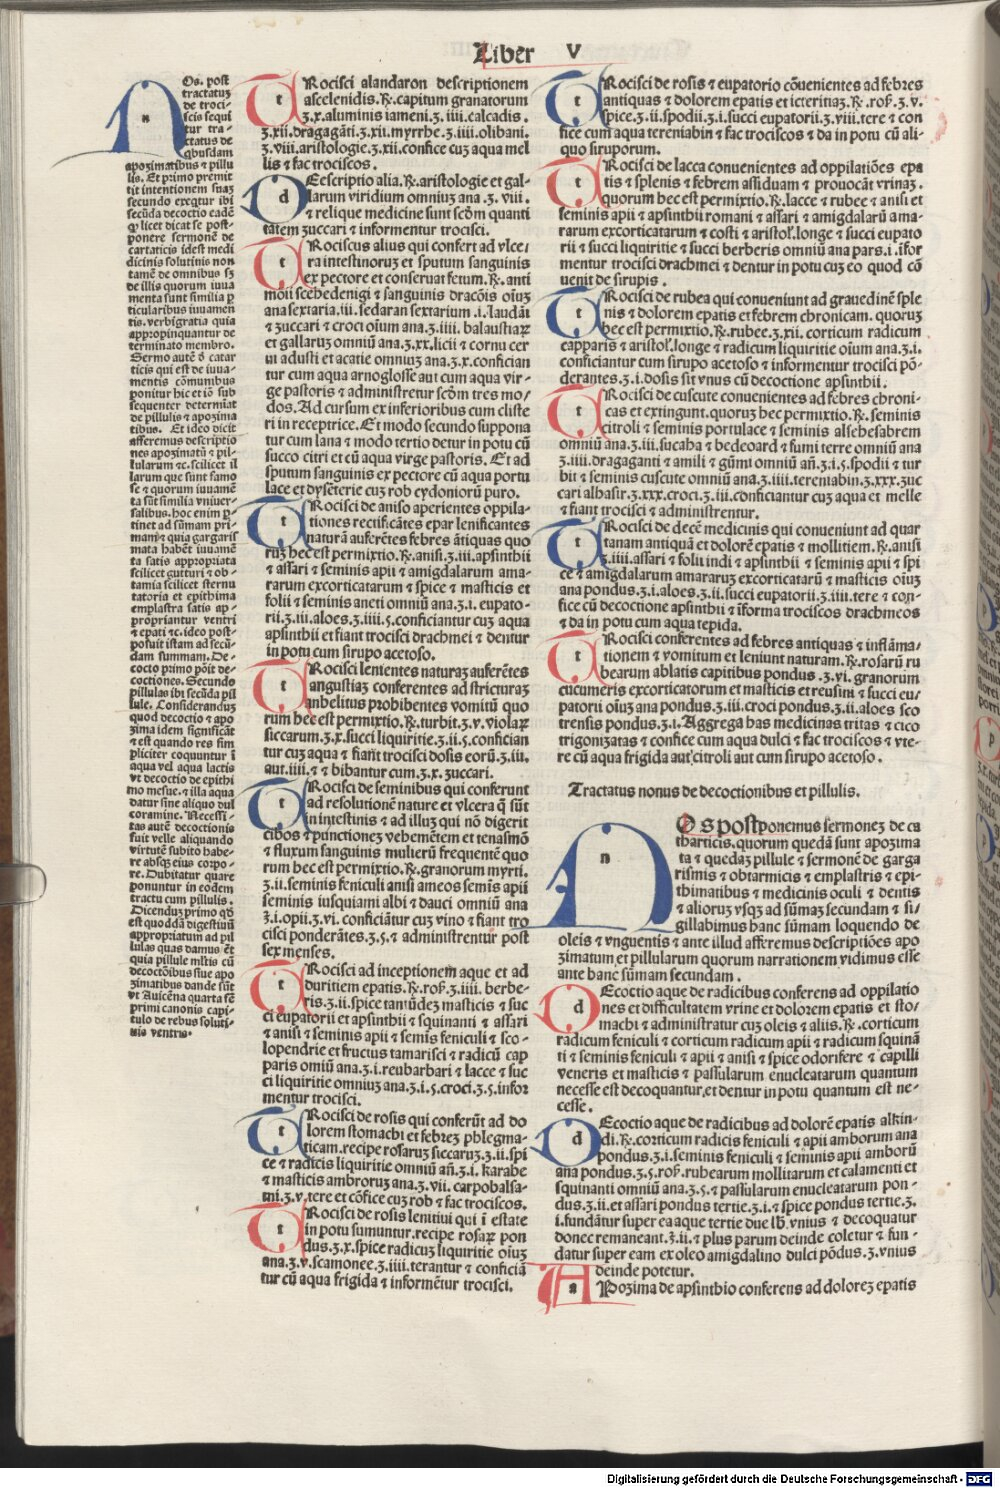 Liber V
Os. post
tractatuz
de troci-
scis sequi
tur tra-
ctatus de
qbusdam
apozimatibus ⁊ pillu
lis. Et primo premit
tit intentionem suaz
secundo exeqtur ibi
secūda decoctio eadē
q̇ licet dicat se post-
ponere sermonē de
cartaticis idest medi
dicinis solutinis non
tamē de omnibus sʒ
de illis quorum iuua
menta sunt similia p̱
ticularibus iuuamen
tis. verbigratia quia
appropinquantur de
terminato membro.
Sermo autē ō catar
ticis qui est de iuua-
mentis cōmunibus
ponitur hic et iō sub
sequenter determiat
de pillulis ⁊ apozima
tibus. Et ideo dicit
afferemus descriptio
nes apozimatū ⁊ pil-
lularum ⁊c. scilicet il
larum que sunt famo
se ⁊ quorum iuuamē
ta sūt similia vniuer-
salibus. hoc enim p̱
tinet ad sūmam pri-
mamꝫ quia gargaris
mata habēt iuuamē
ta satis appropriata
scilicet gutturi ⁊ ob-
tamia scilicet sternu
tatoria et epithima
emplastra satis ap-
propriantur ventri
⁊ epati ⁊c. ideo post-
posuit istam ad secū-
dam summam. De-
cocto primo pōit de-
coctiones. Secundo
pillulas ibi secūda pil
lule. Considerandū
quod decoctio ⁊ apo
zima idem significāt
⁊ est quando res sim
pliciter coquuntur ī
aqua vel aqua lactis
vt decoctio de epithi
mo mesue. ⁊ illa aqua
datur sine aliquo dul
coramine. Necessi-
tas autē decoctionis
fuit velle aliquando
virtutē subito habe-
re absqꝫ eius corpo-
re. Dubitatur quare
ponuntur in eodem
tractu cum pillulis.
Dicenduz primo qd
est quoddā digestiuū
appropriatum ad pil
lulas quas damus. Et
quia pillule mltis cū
decoctōibus siue apo
zimatibus dande sūt
vt Auicēna quarta fē
primi canonis capi-
tulo de rebus soluti-
uis ventris.
t Rocisci alandaron descriptionem
asclenidis. ℞. capitum granatorum
ʒ.x. aluminis iameni. ʒ. iiii. calcadis.
ʒ.xii. dragagāti. ʒ.xii. myrrhe. ʒ. iiii. olibani.
ʒ. viii. aristologie. ʒ.xii. confice cuz aqua mel
lis ⁊ fac trociscos.
d Eescriptio alia. ℞. aristologie et gal-
larum viridium omniuz ana. ʒ. viii.
⁊ relique medicine sunt scōm quanti
tatem zuccari ⁊ informentur trocisci.
t Rociscus alius qui confert ad vlce-
ra intestinoruz et sputum sanguinis
ex pectore et conseruat fetum. ℞. anti
moii scebedenigi ⁊ sanguinis dracōis oīuz
ana sextaria. iii. sedaran sextarium .i. laudāi
⁊ zuccari ⁊ croci oīum ana. ʒ. iiii. balaustiaꝝ
et gallaruz omniū ana. ʒ.xx. licii ⁊ cornu cer
ui adusti et acatie omniuz ana. ʒ.x. confician
tur cum aqua arnoglosse aut cum aqua vir-
ge pastoris ⁊ administretur scōm tres mo/
dos. Ad cursum ex inferioribus cum cliste
ri in receptrice. Et modo secundo suppona
tur cum lana ⁊ modo tertio detur in potu cū
succo citri et cū aqua virge pastoris. Et ad
sputum sanguinis ex pectore cū aqua portu
lace et dysēterie cuz rob cydoniorū puro.
t Rocisci de aniso aperientes oppila-
tiones rectificātes epar lenificantes
naturā auferētes febres ātiquas quo
ruz hec est permixtio. ℞. anisi. ʒ.iii. apsinthii
⁊ assari ⁊ seminis apii ⁊ amigdalarum ama-
rarum excorticatarum ⁊ spice ⁊ masticis et
folii ⁊ seminis aneti omniū ana. ʒ.i. eupato-
rii. ʒ.iii. aloes. ʒ. iiii. 5. conficiantur cuz aqua
apsinthii et fiant trocisci drachmei ⁊ dentur
in potu cum sirupo acetoso.
t Rocisci lenientes naturaz auferētes
angustiaz conferentes ad stricturaz
anhelitus prohibentes vomitū quo
rum hec est permixtio. ℞. turbit. ʒ.v. violaꝝ
siccarum. ʒ.x. succi liquiritie. ʒ.ii. 5. confician
tur cuz aqua ⁊ fiant trocisci dosis eorū. ʒ. iii.
aut. iiii. ⁊ ⁊ bibantur cum. ʒ.x. zuccari.
t Rocisci de seminibus qui conferunt
ad resolutionē nature et vlcera q̄ sūt
in intestinis ⁊ ad illuz qui nō digerit
cibos ⁊ punctionez vehemētem et tenasmō
⁊ fluxum sanguinis mulierū frequentē quo
rum hec est permixtio. ℞. granorum myrti.
ʒ.ii. seminis feniculi anisi ameos semīs apii
seminis iusquiami albi ⁊ dauci omniū ana
ʒ.i. opii. ʒ.vi. conficiātur cuz vino ⁊ fiant tro
cisci ponderātes. ʒ.5. ⁊ administrentur post
sex menses.
t Rocisci ad inceptionem aque et ad
duritiem epatis. ℞. ros̄. ʒ. iiii. berbe-
ris. ʒ.ii. spice tantūdez masticis ⁊ suc
ci eupatorii et apsinthii ⁊ squinanti ⁊ assari
⁊ anisi ⁊ seminis apii ⁊ semīs feniculi ⁊ sco-
lopendrie et fructus tamarisci ⁊ radicū cap
paris omīū ana. ʒ.i. reubarbari ⁊ lacce ⁊ suc
ci liquiritie omniuz ana. ʒ.i. 5. croci. ʒ. 5. infor
mentur trocisci.
t Rocisci de rosis qui conferūt ad do
lorem stomachi et febrez phlegma-
ticam. recipe rosaruz siccaruz. ʒ. ii. spi
ce ⁊ radicis liquiritie omniū añ. ʒ.i. karabe
⁊ masticis ambroruz ana. ʒ. vii. carpobalsa-
mi. ʒ.v. tere et cōfice cuz rob ⁊ fac trociscos.
t Rocisci de rosis lenitiui qui ī estate
in potu sumuntur. recipe rosaꝝ pon
dus. ʒ.x. spice radicuz liquiritie oīuz
ana. ʒ.v. scamonee. ʒ. iiii. terantur ⁊ conficiā
tur cū aqua frigida ⁊ informētur trocisci.
t Rocisci de rosis ⁊ eupatorio cōuenientes ad febres
antiquas ⁊ dolorem epatis et icterinaz. ℞. ros̄. ʒ. v.
spice. ʒ.ii. spodii. ʒ.i. succi eupatorii. ʒ. viii. tere ⁊ con
fice cum aqua tereniabin ⁊ fac trociscos ⁊ da in potu cū ali-
quo siruporum.
t Rocisci de lacca conuenientes ad oppilatiōes epa
tis ⁊ splenis ⁊ febrem assiduam ⁊ prouocāt vrinaz.
quorum hec est permixtio. ℞. lacce ⁊ rubee ⁊ anisi et
seminis apii ⁊ apsinthii romani ⁊ assari ⁊ amigdalarū ama-
rarum excorticatarum ⁊ costi ⁊ aristol̄. longe ⁊ succi eupato
rii ⁊ succi liquiritie ⁊ succi berberis omniū ana pars. i. ifor
mentur trocisci drachmei ⁊ dentur in potu cuz eo quod cō
uenit de sirupis.
t Rocisci de rubea qui conueniunt ad grauedinē sple
nis ⁊ dolorem epatis et febrem chronicam. quoruz
hec est permixtio. ℞. rubee. ʒ. xii. corticum radicum
capparis ⁊ aristol̄. longe ⁊ radicum liquiritie oīum ana. ʒ.i.
conficiantur cum sirupo acetoso ⁊ informentur trocisci pō-
derantes. ʒ.i. dosis sit vnus cū decoctione apsinthii.
t Rocisci de cuscute conuenientes ad febres chroni-
cas et extingunt. quoruz hec permixtio. ℞. seminis
citroli ⁊ seminis portulace ⁊ seminis alsehesabrem
omniū ana. ʒ.iii. sucaha ⁊ bedeoard ⁊ fumi terre omniū ana
ʒ.iiii. dragaganti ⁊ amili ⁊ gūmi omniū añ. ʒ.i. 5. spodii ⁊ tur
bit ⁊ seminis cuscute omniū ana. ʒ. iiii. tereniabin. ʒ.xxx. zuc
cari alhasir. ʒ.xxx. croci. ʒ.iii. conficiantur cuz aqua et melle
⁊ fiant trocisci ⁊ administrentur.
t Rocisci de decē medicinis qui conueniunt ad quar
tanam antiquā et dolorē epatis ⁊ mollitiem. ℞. anisi
ʒ.iiii. assari ⁊ folii indi ⁊ apsinthii ⁊ seminis apii ⁊ spi
ce ⁊ amigdalarum amararuz excorticatarū ⁊ masticis oīuz
ana pondus. ʒ.i. aloes. ʒ.ii. succi eupatorii. ʒ. iiii. tere ⁊ con-
fice cū decoctione apsinthii ⁊ iforma trociscos drachmeos
⁊ da in potu cum aqua tepida.
t Rocisci conferentes ad febres antiquas ⁊ inflāma-
tionem ⁊ vomitum et leniunt naturam. ℞. rosarū ru
bearum ablatis capitibus pondus. ʒ. vi. granorum
cucumeris excorticatorum et masticis et reusini ⁊ succi eu/
patorii oīuz ana pondus. ʒ.iii. croci pondus. ʒ.ii. aloes sco
trensis pondus. ʒ.i. Aggrega has medicinas tritas ⁊ cico
trigonizatas ⁊ confice cum aqua dulci ⁊ fac trociscos ⁊ vte-
re cū aqua frigida aut citroli aut cum sirupo acetoso.
Tractatus nonus de decoctionibus et pillulis.
n Os postponemus sermonez de ca
tharticis. quorum quedā sunt apozima
ta ⁊ quedaz pillule ⁊ sermonē de garga
rismis ⁊ obtarmicis ⁊ emplastris ⁊ epi-
thimatibus ⁊ medicinis oculi ⁊ dentis
⁊ alioruz vsqꝫ ad sūmaz secundam ⁊ si/
gillabimus hanc sūmam loquendo de
oleis ⁊ vnguentis ⁊ ante illud afferemus descriptiōes apo
zimatum et pillularum quorum narrationem vidimus esse
ante hanc sūmam secundam.
d Ecoctio aque de radicibus conferens ad oppilatio
nes et difficultatem vrine et dolorem epatis et sto-
machi ⁊ administratur cuz oleis ⁊ aliis. ℞. corticum
radicum feniculi ⁊ corticum radicum apii ⁊ radicum squinā
ti ⁊ seminis feniculi ⁊ apii ⁊ anisi ⁊ spice odorifere ⁊ capilli
veneris et masticis ⁊ passularum enucleatarum quantum
necesse est decoquantur. et dentur in potu quantum est ne-
cesse.
d Ecoctio aque de radicibus ad dolorē epatis alkin-
di. ℞. corticum radicis feniculi ⁊ apii amborum ana
pondus. ʒ.i. seminis feniculi ⁊ seminis apii amborū
aña pondus. ʒ.5. ros̄. rubearum mollitarum et calamenti et
squinanti omniū ana. ʒ.5. ⁊ passularum enucleatarum pon-
dus. ʒ.ii. et assari pondus tertie. ʒ.i. ⁊ spice pondus tertie. ʒ.
i. fundātur super ea aque tertie due lb̄. vnius ⁊ decoquatur
donec remaneant. ʒ.ii. ⁊ plus parum deinde coletur ⁊ fun-
datur super eam ex oleo amigdalino dulci pōdus. ʒ. vnius
deinde potetur.
a Pozima de apsinthio conferens ad dolorez epatis
Digitalisierung gefördert durch die Deutsche Forschungsgemeinschaft - DFG